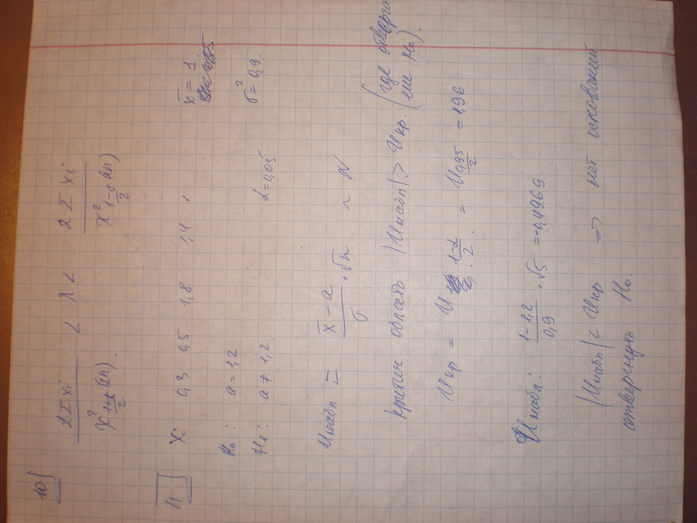 10)
2Σxi / χ² 1+γ/2 (2n) < λ < 2Σxi / χ² 1-γ/2 (2n)
11
Xi 0,3 0,5 1,8 1,4 1 x̄ = 1
H₀: a = 1,2 σ² = 0,9
H₁: a ≠ 1,2 α = 0,05
Uнабл = (x̄ - a)/σ · √n ~ N
критич область |Uнабл| > Uкр. (где
Uкр = U (1-α)/2 = U 0,95/2 = 1,96
Uнабл: (1-1,2)/0,9 · √5 = -0,4969
|Uнабл| < Uкр ⇒ нет оснований
отвергнуть H₀.